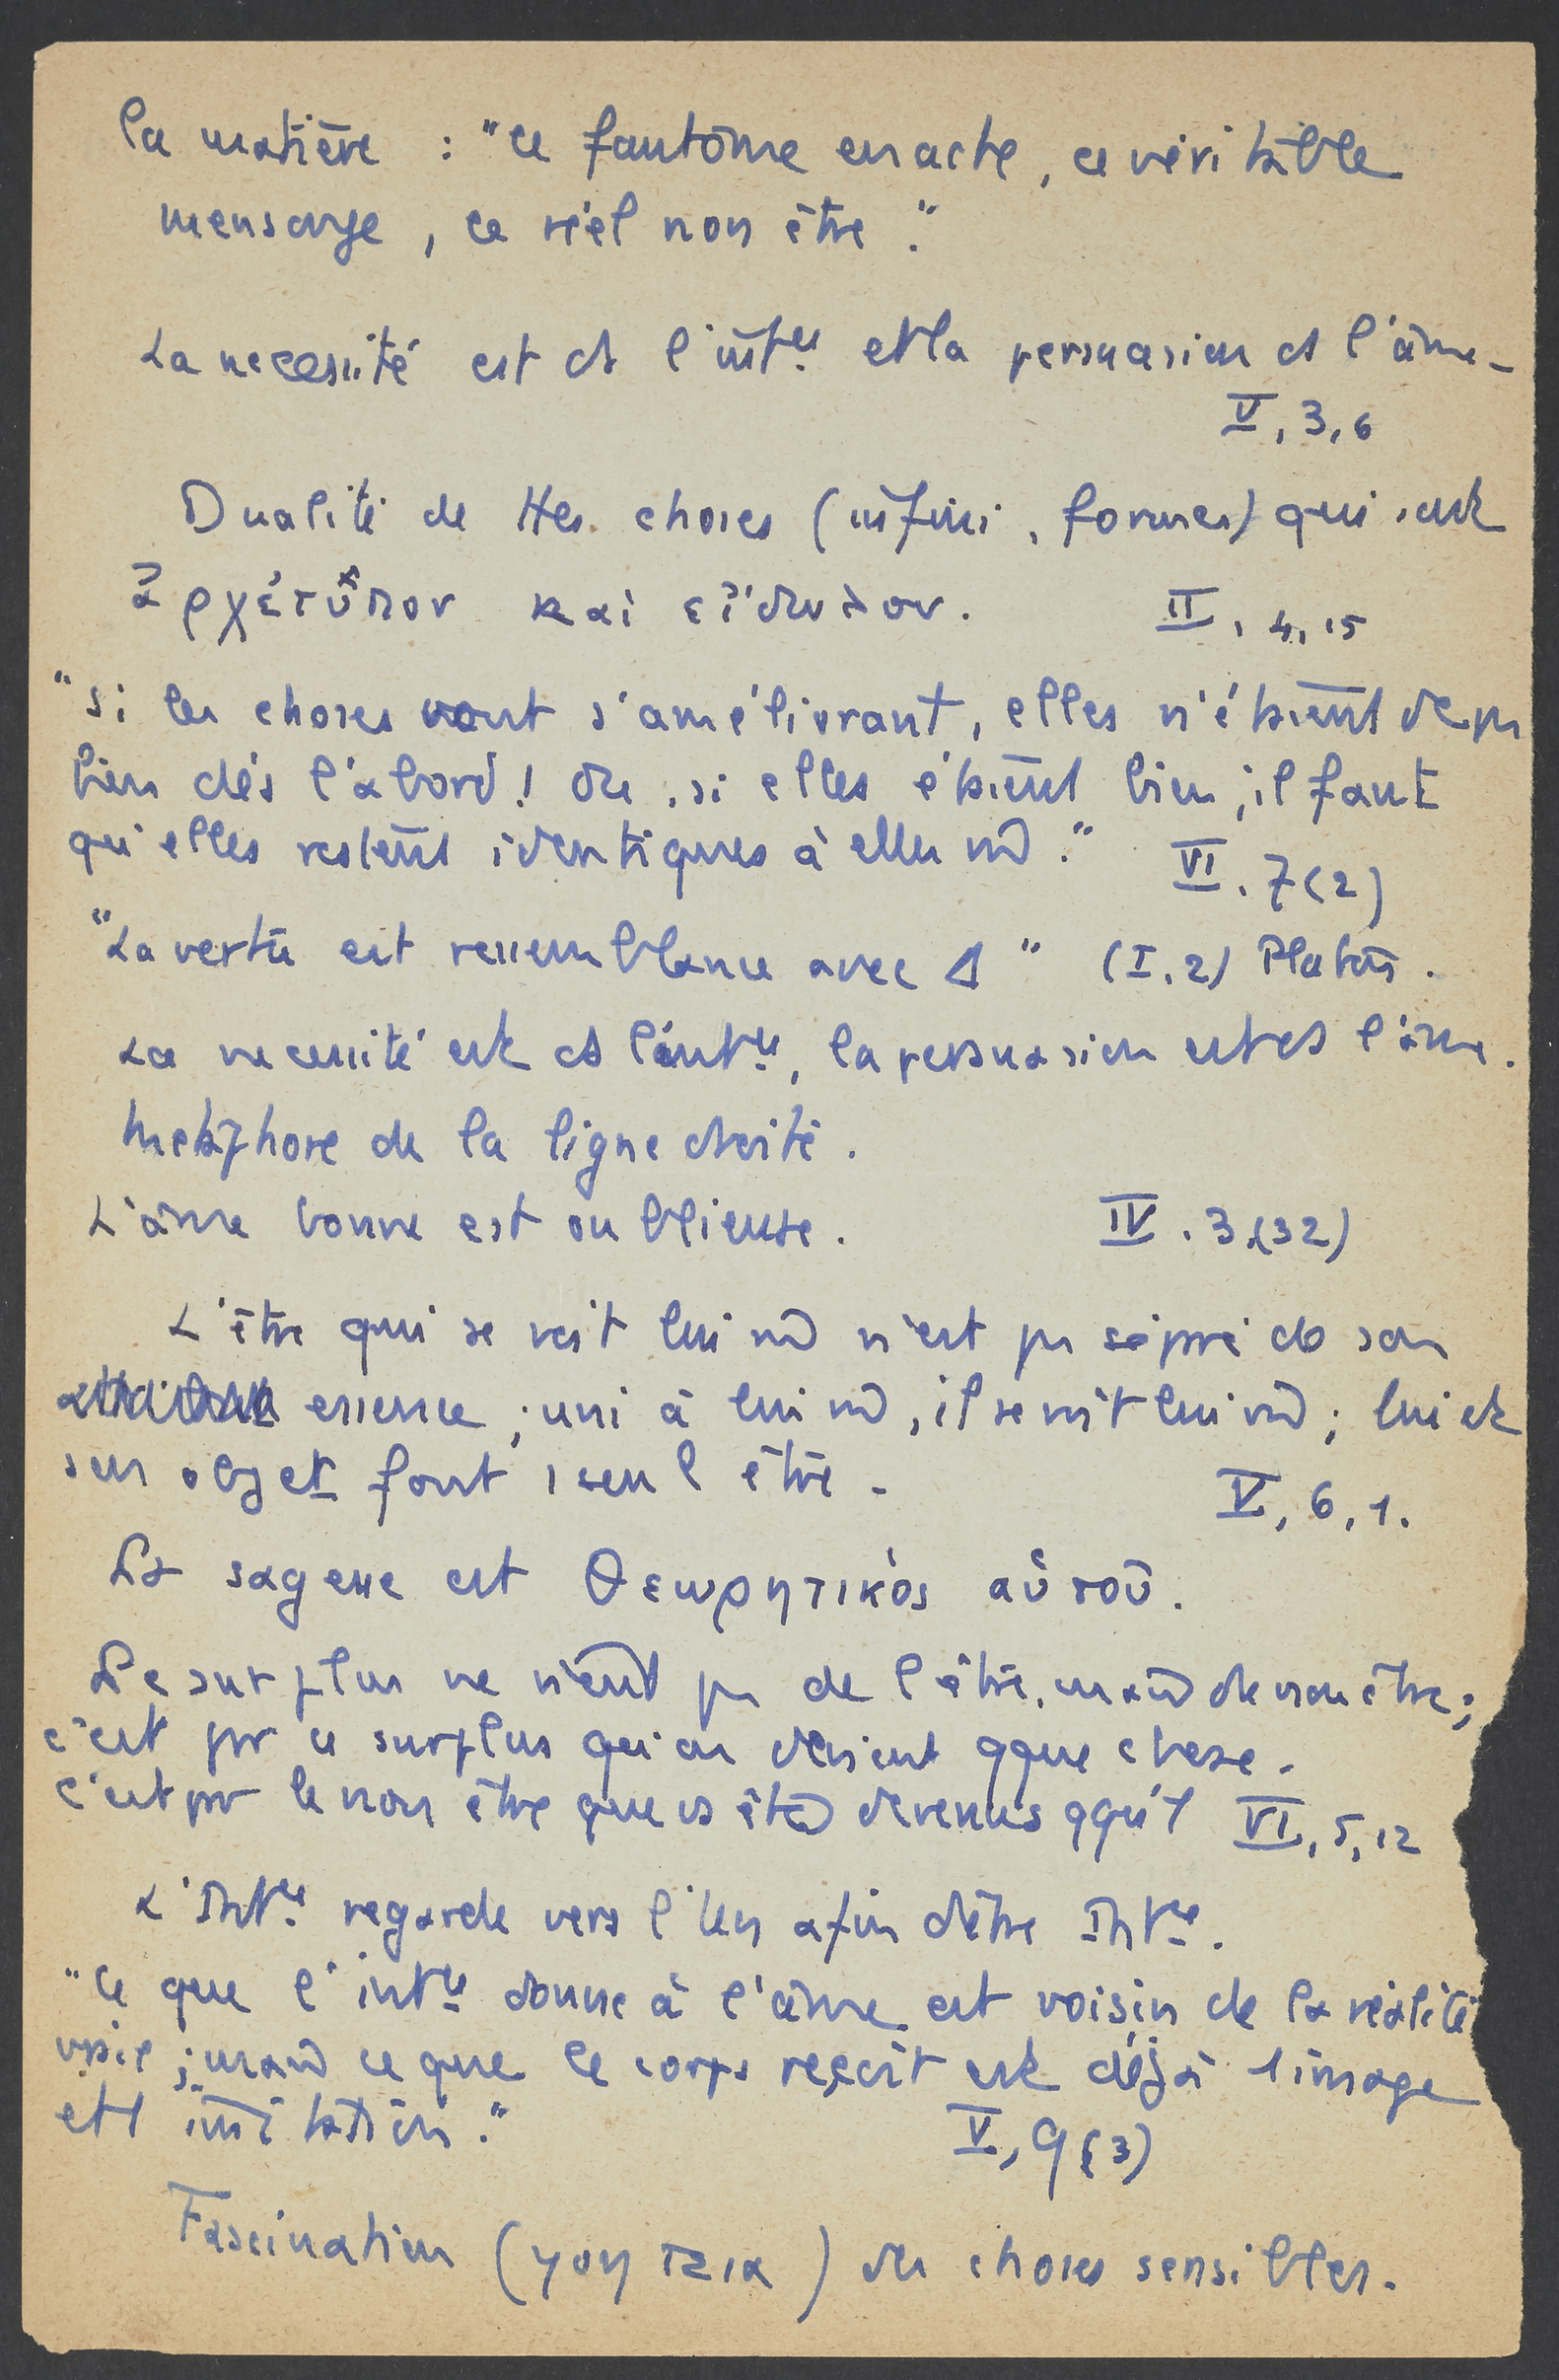 la matière : "ce fantôme en acte, ce véritable
mensonge, ce réel non être."
La necessité est ds l'intce et la persuasion ds l'âme -
V, 3, 6
Dualité de ttes choses (infini, formes) qui sont
ἀρχέτυπον καὶ εἴδωλον. II, 4, 15
"Si les choses vont s'améliorant, elles n'étaient donc pas
bien dès l'abord! Ou, si elles étaient bien, il faut
qu'elles restent identiques à elles m̂." VI. 7 (2)
"La vertu est ressemblance avec Δ" (I, 2) Platon.
La necessité est ds l'intce, la persuasion est ds l'âme.
Métaphore de la ligne droite.
L'âme bonne est oublieuse. IV. 3, (32)
L'être qui se voit lui m̂ n'est pas séparé de son
essence ; uni à lui m̂, il se voit lui m̂ ; lui et
son objet font 1 seul être - V, 6, 1.
La sagesse est θεωρητικός αὑτοῦ.
Le surplus ne vient pas de l'être, mais de non être ;
c'est par ce surplus qu'on devient qque chose.
c'est par le non être que vs êtes devenus qqu'1 VI, 5, 12
L'Intce regarde vers l'Un afin d'être Intce.
"Ce que l'intce donne à l'âme est voisin de la réalité
vraie ; mais ce que le corps reçoit est déjà 1 image
et 1 imitation." V, 9 (3)
Fascination (γοητεια) des choses sensibles.